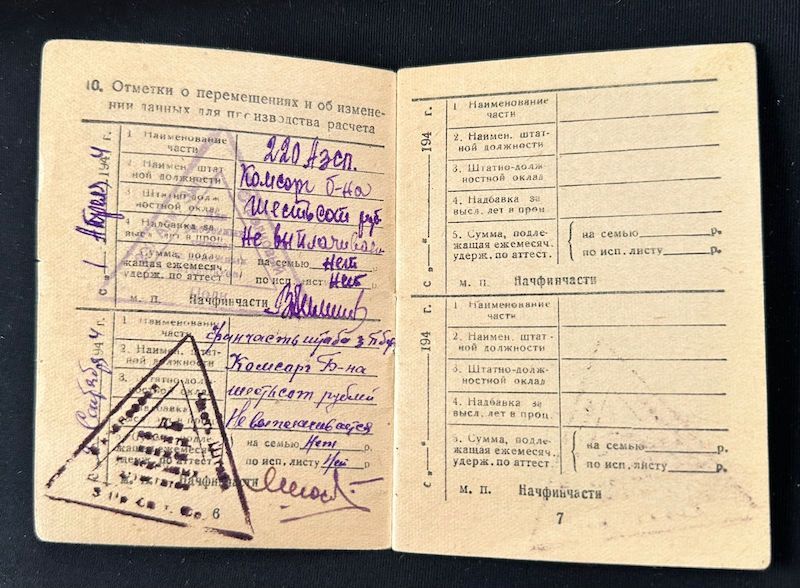 10. Отметки о перемещениях и об измене-
нии данных для производства расчета
с „1 Апреля 1944 г.
1. Наименование части
220 Аэсп.
2. Наимен. штатной должности
Комсорг б-на
3. Штатно-должностной оклад
шестьсот руб
4. Надбавка за выс. лет в проц.
Не выплачивает
Сумма, подлежащая ежемесяч. удерж. по аттест.
на семью Нет
по исп. листу Нет
М. П. Начфинчасти
1944
1. Наименование части
финчасть штаба 3
2. Наимен. штатной должности
Комсорг Б-на
3. Штатно-должн
шестьсот рублей
Надбавка
Не выплачивается
на семью Нет р.
по исп. листу Нет р.
Начфинчасти
6
с „ “ 194 г.
1 Наименование
части
2. Наимен. штат-
ной должности
3. Штатно-долж-
ностной оклад
4. Надбавка за
высл. лет в проц.
5. Сумма, подле-
жащая ежемесяч.
удерж. по аттест.
на семью р.
по исп. листу р.
М. П. Начфинчасти
с „ “ 194 г.
1. Наименование
части
2. Наимен. штат-
ной должности
3. Штатно-долж-
ностной оклад
4. Надбавка за
высл. лет в проц.
5. Сумма, подле-
жащая ежемесяч.
удерж. по аттест.
на семью р.
по исп. листу р.
М. П. Начфинчасти
7